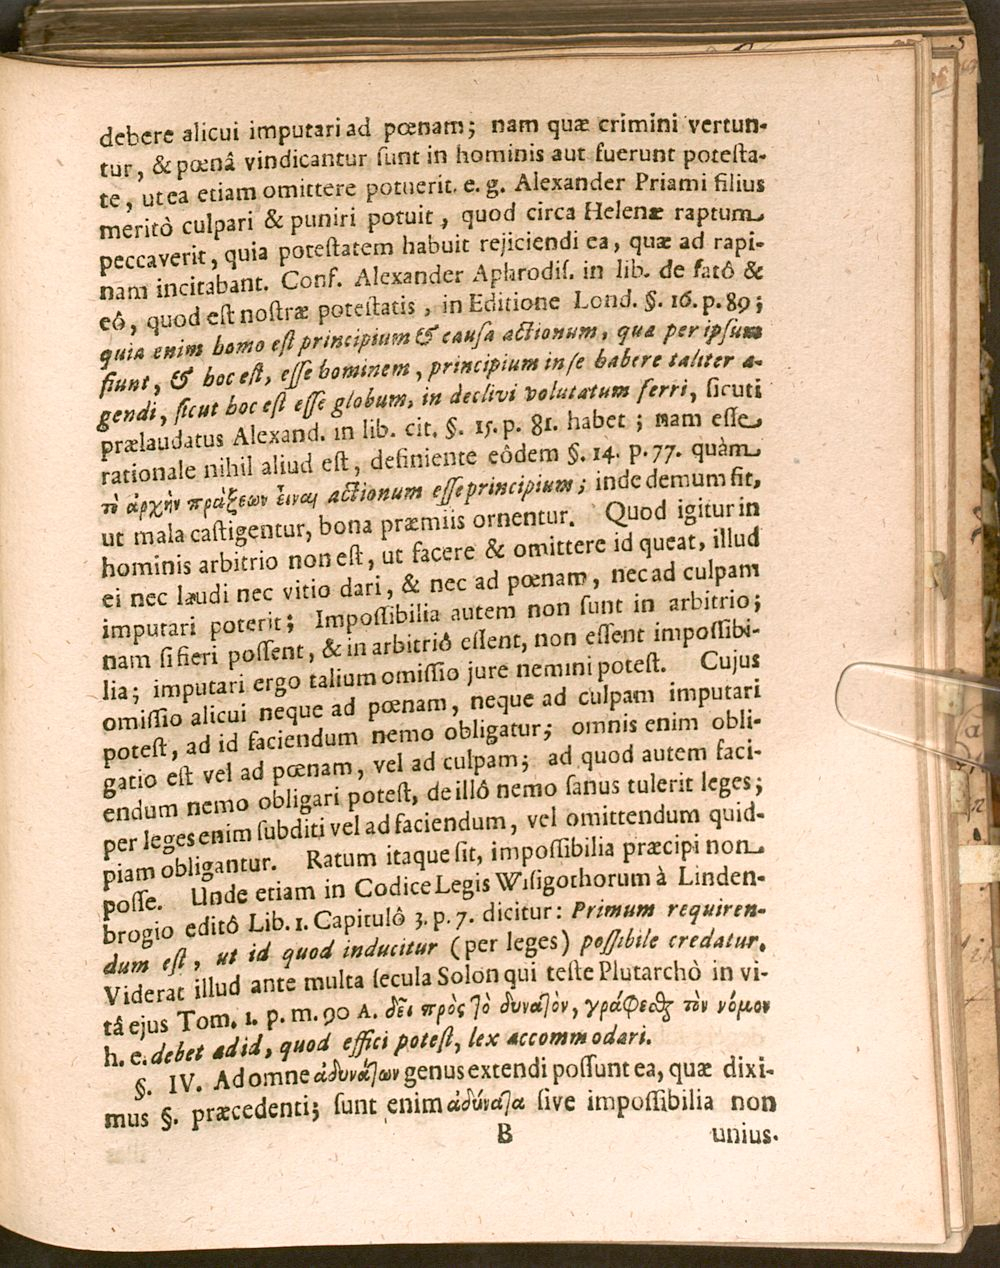 debere alicui imputari ad pœnam; nam quæ crimini vertun-
tur, & pœnâ vindicantur ſunt in hominis aut fuerunt poteſta-
te, ut ea etiam omittere potuerit. e. g. Alexander Priami filius
meritò culpari & puniri potuit, quod circa Helenæ raptum
peccaverit, quia poteſtatem habuit rejiciendi ea, quæ ad rapi-
nam incitabant. Conf. Alexander Aphrodiſ. in lib. de fatô &
eô, quod eſt noſtræ poteſtatis, in Editione Lond. §. 16. p. 89;
quia enim homo eſt principium & cauſa actionum, quæ per ipſum
fiunt, & hoc eſt, eſſe hominem, principium in ſe habere taliter a-
gendi, ſicut hoc eſt eſſe globum, in declivi volutatum ferri, ſicuti
prælaudatus Alexand. in lib. cit. §. 15. p. 81. habet; nam eſſe
rationale nihil aliud eſt, definiente eôdem §. 14. p. 77. quàm
τὸ ἀρχὴν πράξεων εἶναι actionum eſſe principium; inde demum fit,
ut mala caſtigentur, bona præmiis ornentur. Quod igitur in
hominis arbitrio non eſt, ut facere & omittere id queat, illud
ei nec laudi nec vitio dari, & nec ad pœnam, nec ad culpam
imputari poterit; Impoſſibilia autem non ſunt in arbitrio;
nam ſi fieri poſſent, & in arbitriô eſſent, non eſſent impoſſibi-
lia; imputari ergo talium omiſſio jure nemini poteſt. Cujus
omiſſio alicui neque ad pœnam, neque ad culpam imputari
poteſt, ad id faciendum nemo obligatur; omnis enim obli-
gatio eſt vel ad pœnam, vel ad culpam; ad quod autem faci-
endum nemo obligari poteſt, de illô nemo ſanus tulerit leges;
per leges enim ſubditi vel ad faciendum, vel omittendum quid-
piam obligantur. Ratum itaque ſit, impoſſibilia præcipi non
poſſe. Unde etiam in Codice Legis Wiſigothorum à Linden-
brogio editô Lib. 1. Capitulô 3. p. 7. dicitur: Primum requiren-
dum eſt, ut id quod inducitur (per leges) poſſibile credatur.
Viderat illud ante multa ſecula Solon qui teſte Plutarchò in vi-
tâ ejus Tom. 1. p. m. 90 A. δεῖ πρὸς τὸ δυνατὸν, γράφεσθαι τὸν νόμον
h. e. debet ad id, quod effici poteſt, lex accommodari.
§. IV. Ad omne ἀδυνάτων genus extendi poſſunt ea, quæ dixi-
mus §. præcedenti; ſunt enim ἀδύνατα ſive impoſſibilia non
B unius-